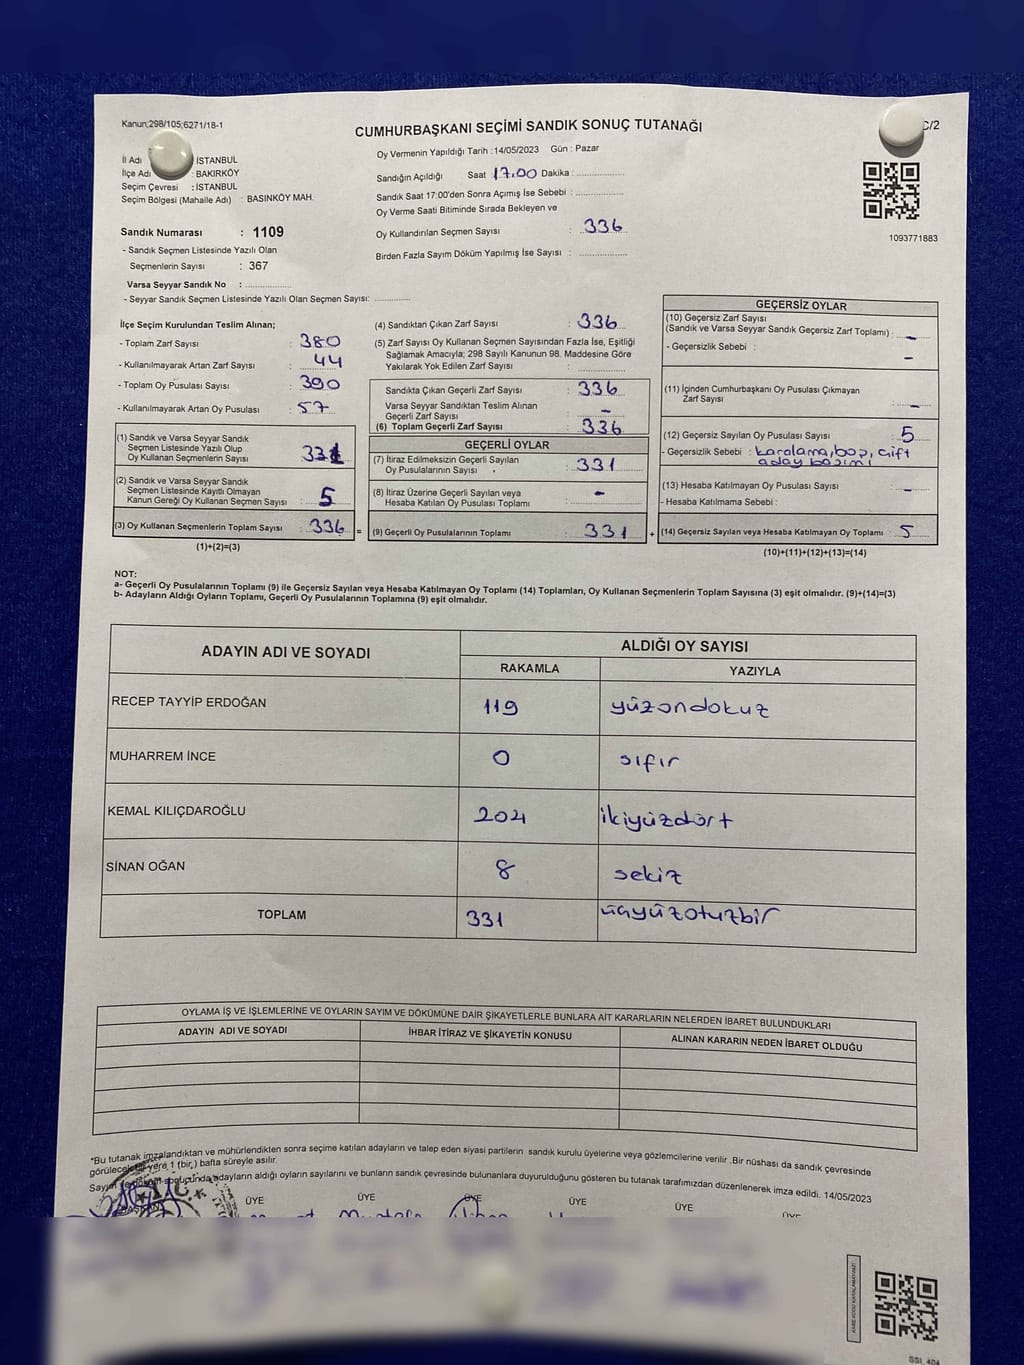 Kanun;298/105;6271/18-1
CUMHURBAŞKANI SEÇİMİ SANDIK SONUÇ TUTANAĞI
C/2
İl Adı İSTANBUL
İlçe Adı : BAKIRKÖY
Seçim Çevresi : İSTANBUL
Seçim Bölgesi (Mahalle Adı) : BASINKÖY MAH.
Sandık Numarası : 1109
- Sandık Seçmen Listesinde Yazılı Olan
Seçmenlerin Sayısı : 367
Varsa Seyyar Sandık No : ..............
- Seyyar Sandık Seçmen Listesinde Yazılı Olan Seçmen Sayısı: ............
Oy Vermenin Yapıldığı Tarih : 14/05/2023 Gün : Pazar
Sandığın Açıldığı Saat 17.00 Dakika : ..............
Sandık Saat 17:00'den Sonra Açımış İse Sebebi : ..............
Oy Verme Saati Bitiminde Sırada Bekleyen ve
Oy Kullandırılan Seçmen Sayısı : 336
Birden Fazla Sayım Döküm Yapılmış İse Sayısı : ..............
1093771883
İlçe Seçim Kurulundan Teslim Alınan;
- Toplam Zarf Sayısı : 380
- Kullanılmayarak Artan Zarf Sayısı : 44
- Toplam Oy Pusulası Sayısı : 390
- Kullanılmayarak Artan Oy Pusulası : 57
(1) Sandık ve Varsa Seyyar Sandık
Seçmen Listesinde Yazılı Olup
Oy Kullanan Seçmenlerin Sayısı : 331
(2) Sandık ve Varsa Seyyar Sandık
Seçmen Listesinde Kayıtlı Olmayan
Kanun Gereği Oy Kullanan Seçmen Sayısı : 5
(3) Oy Kullanan Seçmenlerin Toplam Sayısı : 336 =
(1)+(2)=(3)
(4) Sandıktan Çıkan Zarf Sayısı : 336
(5) Zarf Sayısı Oy Kullanan Seçmen Sayısından Fazla İse, Eşitliği
Sağlamak Amacıyla; 298 Sayılı Kanunun 98. Maddesine Göre
Yakılarak Yok Edilen Zarf Sayısı : ..............
Sandıkta Çıkan Geçerli Zarf Sayısı : 336
Varsa Seyyar Sandıktan Teslim Alınan
Geçerli Zarf Sayısı : -
(6) Toplam Geçerli Zarf Sayısı : 336
GEÇERLİ OYLAR
(7) İtiraz Edilmeksizin Geçerli Sayılan
Oy Pusulalarının Sayısı : 331
(8) İtiraz Üzerine Geçerli Sayılan veya
Hesaba Katılan Oy Pusulaları Toplamı : -
(9) Geçerli Oy Pusulalarının Toplamı : 331 +
GEÇERSİZ OYLAR
(10) Geçersiz Zarf Sayısı
(Sandık ve Varsa Seyyar Sandık Geçersiz Zarf Toplamı) : -
- Geçersizlik Sebebi : -
(11) İçinden Cumhurbaşkanı Oy Pusulası Çıkmayan
Zarf Sayısı : -
(12) Geçersiz Sayılan Oy Pusulası Sayısı : 5
- Geçersizlik Sebebi : karalama, boş, çift
aday basımı
(13) Hesaba Katılmayan Oy Pusulası Sayısı : -
- Hesaba Katılmama Sebebi :
(14) Geçersiz Sayılan veya Hesaba Katılmayan Oy Toplamı : 5
(10)+(11)+(12)+(13)=(14)
NOT:
a- Geçerli Oy Pusulalarının Toplamı (9) ile Geçersiz Sayılan veya Hesaba Katılmayan Oy Toplamı (14) Toplamları, Oy Kullanan Seçmenlerin Toplam Sayısına (3) eşit olmalıdır. (9)+(14)=(3)
b- Adayların Aldığı Oyların Toplamı, Geçerli Oy Pusulalarının Toplamına (9) eşit olmalıdır.
ADAYIN ADI VE SOYADI ALDIĞI OY SAYISI
RAKAMLA YAZIYLA
RECEP TAYYİP ERDOĞAN 119 yüzondokuz
MUHARREM İNCE 0 sıfır
KEMAL KILIÇDAROĞLU 204 ikiyüzdört
SİNAN OĞAN 8 sekiz
TOPLAM 331 üçyüzotuzbir
OYLAMA İŞ VE İŞLEMLERİNE VE OYLARIN SAYIM VE DÖKÜMÜNE DAİR ŞİKAYETLERLE BUNLARA AİT KARARLARIN NELERDEN İBARET BULUNDUKLARI
ADAYIN ADI VE SOYADI İHBAR İTİRAZ VE ŞİKAYETİN KONUSU ALINAN KARARIN NEDEN İBARET OLDUĞU
*Bu tutanak imzalandıktan ve mühürlendikten sonra seçime katılan adayların ve talep eden siyasi partilerin sandık kurulu üyelerine veya gözlemcilerine verilir .Bir nüshası da sandık çevresinde
görülecek yere 1 (bir,) hafta süreyle asılır.
Sayım ve döküm sonucunda adayların aldığı oyların sayılarını ve bunların sandık çevresinde bulunanlara duyurulduğunu gösteren bu tutanak tarafımızdan düzenlenerek imza edildi. 14/05/2023
BAŞKAN ÜYE ÜYE ÜYE ÜYE ÜYE ÜYE